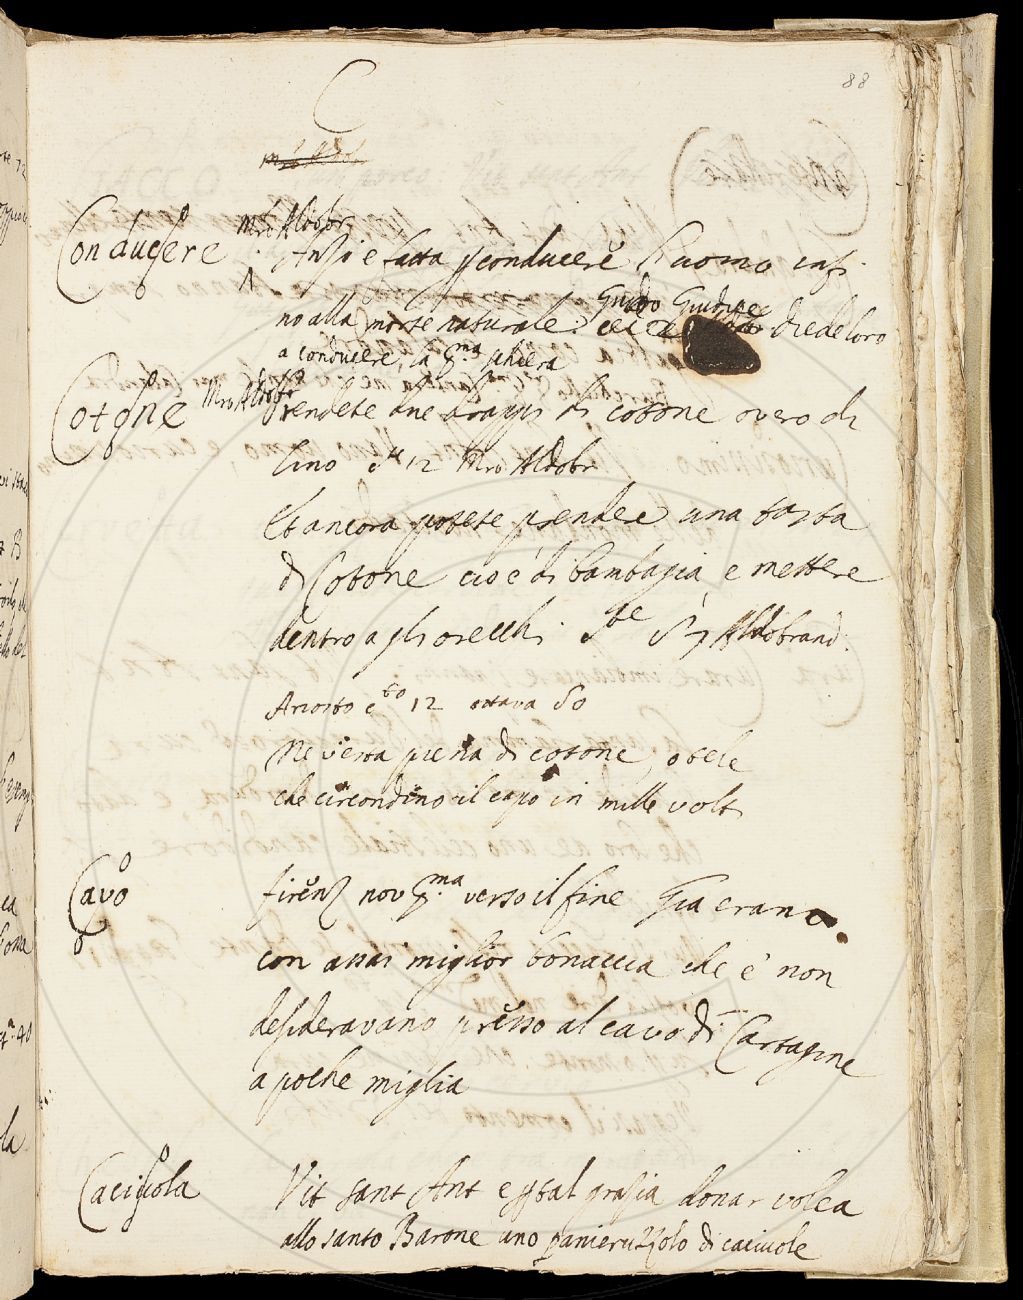 88
C
Conducere Mro Aldobr
Anzi è fatta p conducere l'huomo infi
no alla morte naturale Guido Giudice diede loro
a conducere, la pma schiera
Cotone Mro Aldobr
Prendete due drappi di cotone overo di
lino 12 Mro Aldobr
Et ancora potete prendere una tasta
di Cotone cio è di bambagia, e mettere
dentro agli orecchi Aldobrand.
Ariosto cto 12 ottava 50
Ne verta piena di cotone, o tele
che circondino il capo in mille volti
Cavo
firenz nov pma verso il fine Gia erano
con assai miglior bonaccia che è non
desideravano presso al cavo di Cartagine
a poche miglia
Caciuola
Vit sant Ant e p tal grazia donar volea
allo santo Barone uno panieruzzolo di caciuole